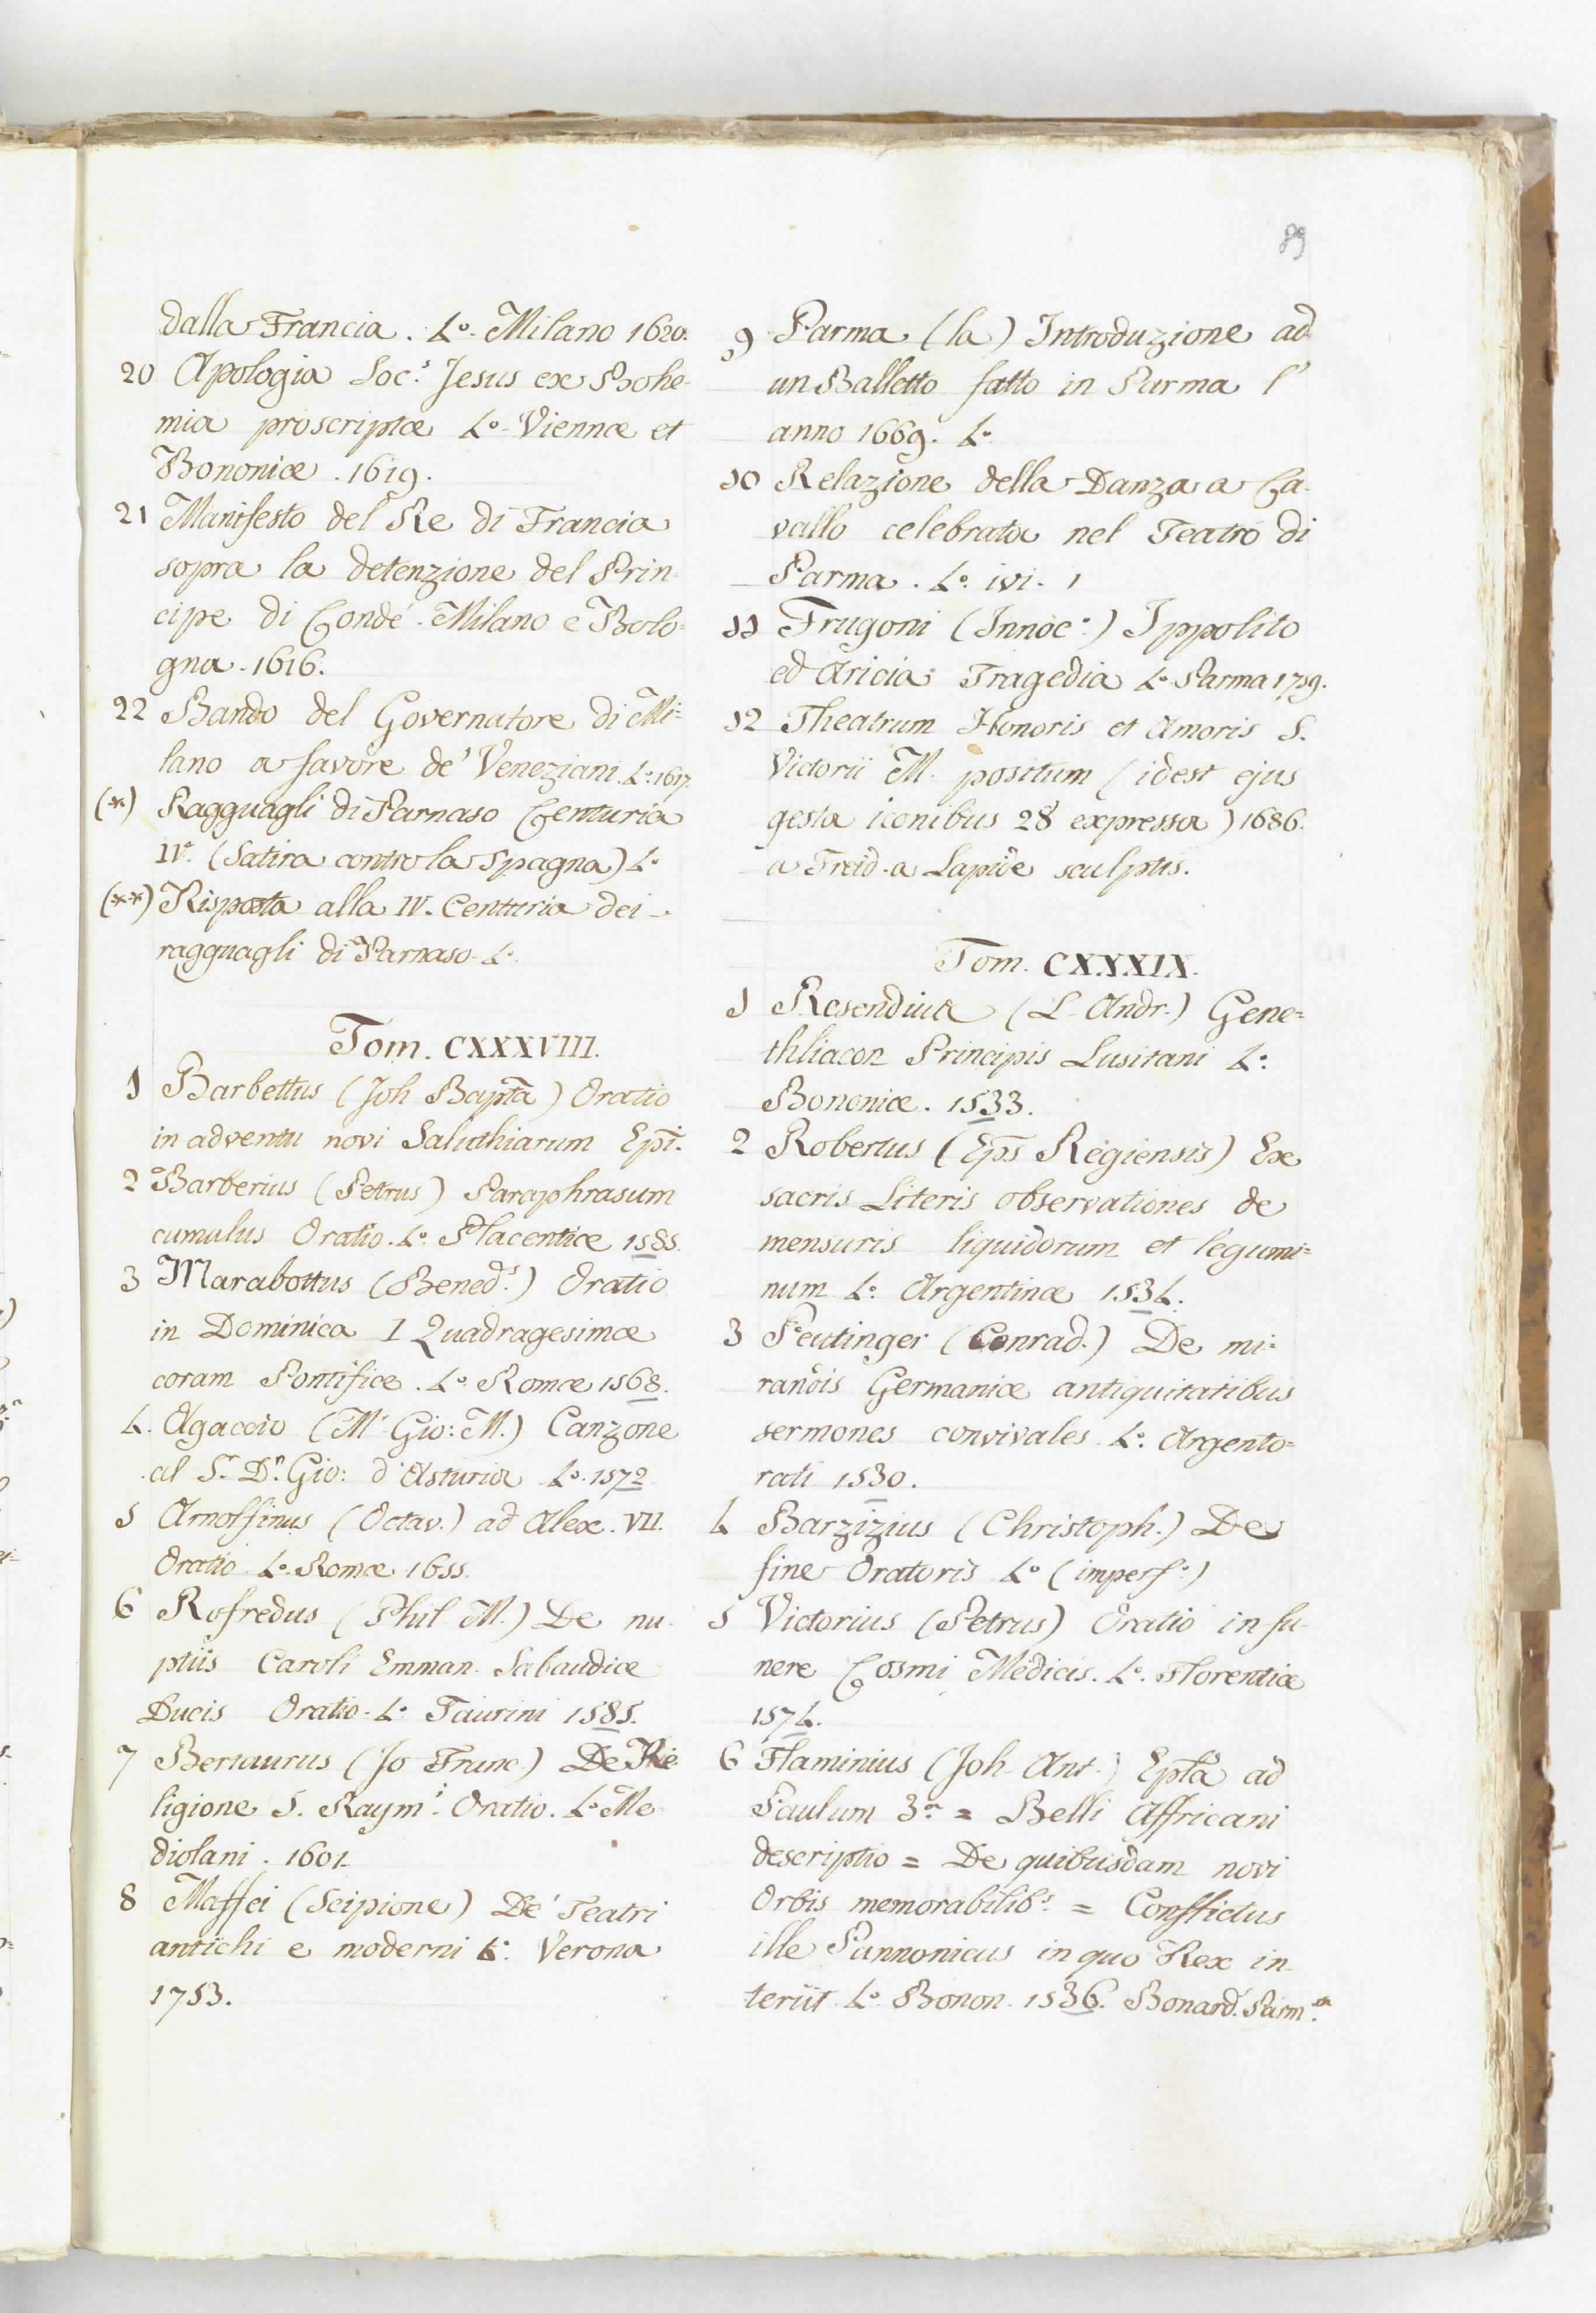 89
dalla Francia. 4.º Milano 1620.
20 Apologia Soc.s Jesus ex Bohe-
mia proscriptæ 4.º Viennæ et
Bononiæ. 1619.
21 Manifesto del Re di Francia
sopra la detenzione del Prin-
cipe di Condé. Milano e Bolo=
gna. 1616.
22 Bando del Governatore di Mi=
lano a favore de' Veneziani. 4.º 1617.
(*) Ragguagli di Parnaso Centuria
IV.a (Satira contro la Spagna) 4.º
(**) Risposta alla IV. Centuria dei
ragguagli di Parnaso. 4.º
Tom. CXXXVIII.
1 Barbettus (Joh Bapta) Oratio
in adventu novi Saluthiarum Epi.
2 Barberius (Petrus) Paraphrasum
cumulus Oratio. 4.º Placentiæ 1585.
3 Marabottus (Bened.s) Oratio
in Dominica I Quadragesimæ
coram Pontifice. 4.º Romæ 1568.
4. Agaccio (M.r Gio: M.) Canzone
al S.r D.n Gio: d'Asturia 4.º 1572
5 Arnolfinus (Octav.) ad Alex. VII.
Oratio 4.º Romæ 1655.
6 Rofredus (Phil. M.) De nu-
ptiis Caroli Emman. Sabaudiæ
Ducis Oratio. 4.º Taurini 1585.
7 Bertaurus (Jo Franc.) De Re-
ligione S. Raym.i Oratio. 4.º Me-
diolani. 1601.
8 Maffei (Scipione) De' Teatri
antichi e moderni 4.º Verona
1753.
9 Parma (la) Introduzione ad
un Balletto fatto in Parma l'
anno 1669. 4.º
10 Relazione della Danza a Ca-
vallo celebrata nel Teatro di
Parma. 4.º ivi.
11 Frugoni (Innoc.o) Ippolito
ed Aricia: Tragedia 4.º Parma 1759.
12 Theatrum Honoris et Amoris S.
Victorii M. positum (idest ejus
gesta iconibus 28 expressa) 1686.
a Freid. a Lapide sculptis.
Tom. CXXXIX.
1 Resendius (L. Andr.) Gene=
thliacon Principis Lusitani 4.º
Bononiæ. 1533.
2 Robertus (Eps Regiensis) Ex
sacris Literis observationes de
mensuris liquidorum et legumi=
num 4.º Argentinæ 1534.
3 Peutinger (Conrad.) De mi=
randis Germaniæ antiquitatibus
sermones convivales 4.º Argento=
rati 1530.
4 Barzizius (Christoph.) De
fine Oratoris 4.º (imperf.o)
5 Victorius (Petrus) Oratio in fu-
nere Cosmi Medicis. 4.º Florentiæ
1574.
6 Flaminius (Joh. Ant.) Epta ad
Paulum 3.m = Belli Affricani
descriptio = De quibusdam novi
Orbis memorabilib.s = Conflictus
ille Pannonicus in quo Rex in
teriit 4.º Bonon. 1536. Bonard. Parm.m